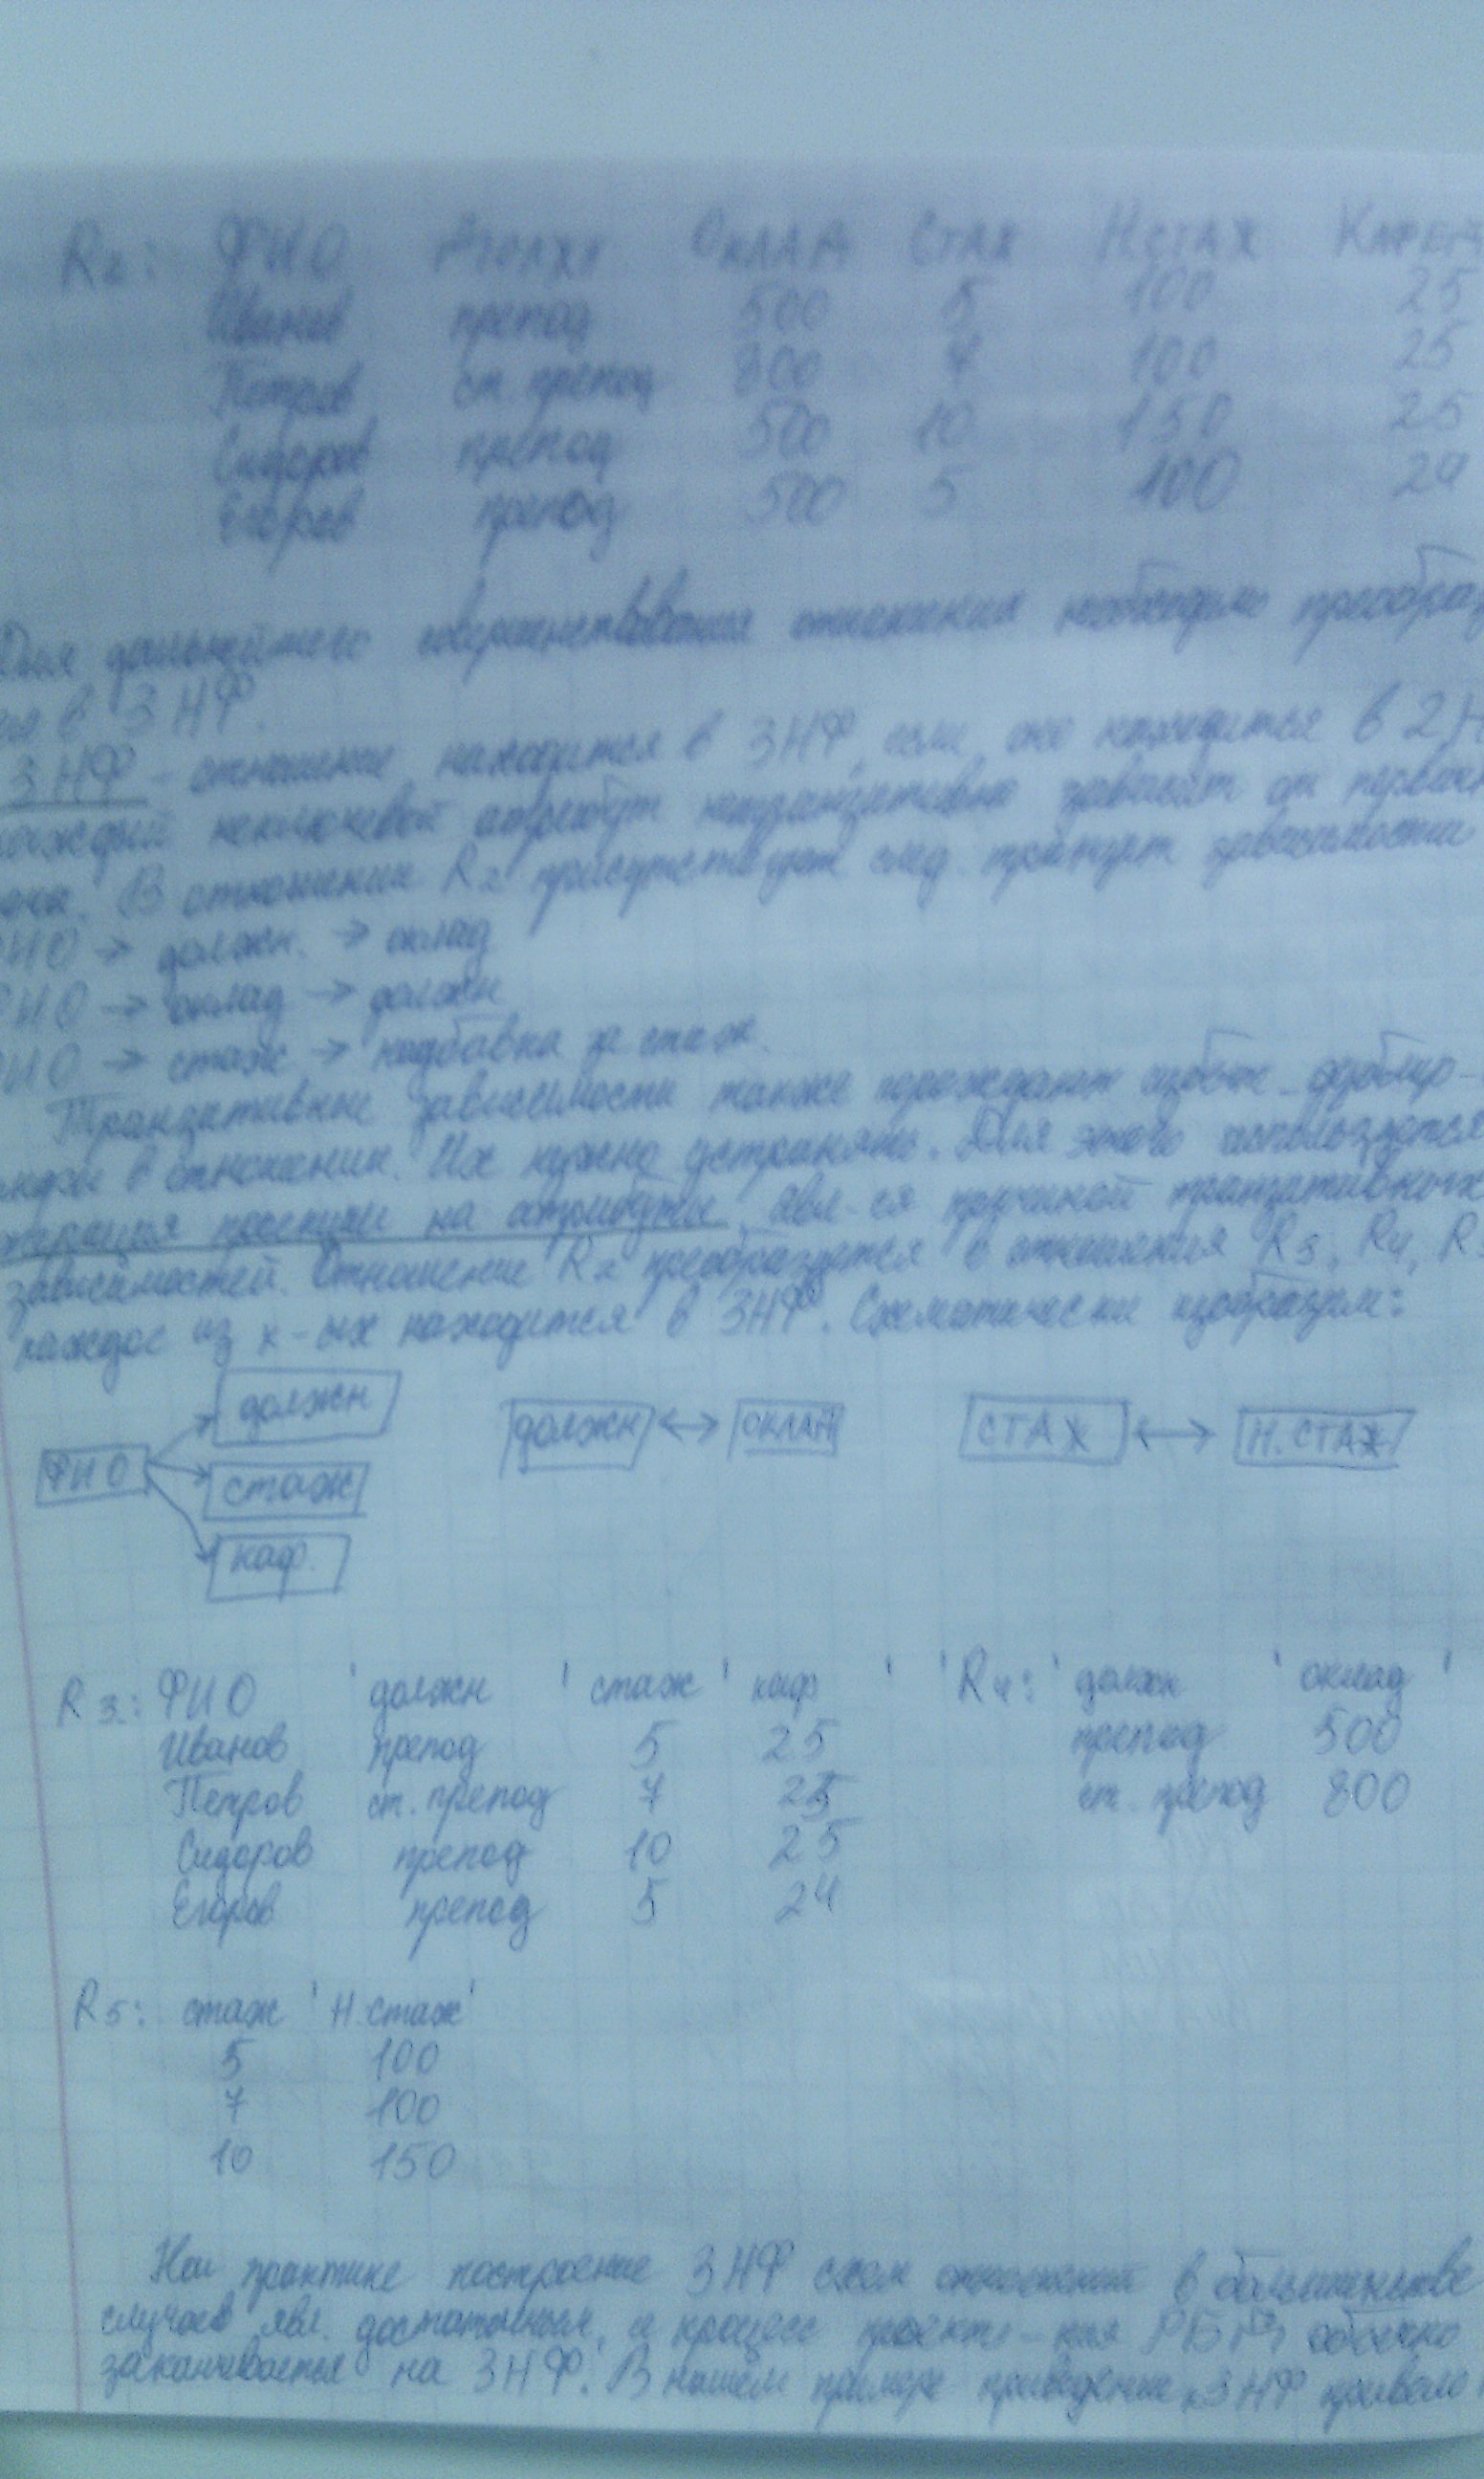 R2: ФИО Должн Оклад Стаж Н.стаж Кафед
Иванов препод 500 5 100 25
Петров ст. препод 800 7 100 25
Сидоров препод 500 10 150 25
Егоров препод 500 5 100 24
Для дальнейшего совершенствования отношения необходимо преобра
в 3 НФ.
3 НФ - отношение находится в 3НФ, если оно находится в 2Н
каждый неключевой атрибут нетранзитивно зависит от первич
В отношении R2 присутствуют след. транзит зависимости
ФИО → должн. → оклад
ФИО → оклад → должн
ФИО → стаж → надбавка за стаж.
Транзитивные зависимости также порождают избыт. дублир-
инфы в отношении. Их нужно устранять. Для этого используется
операция проекции на атрибуты, явл-ся причиной транзитивных
зависимостей. Отношение R2 преобразуется в отношения R3, R4, R
каждое из к-ых находится в 3НФ. Схематически изобразим:
должн
ФИО стаж должн ↔ оклад стаж ↔ Н.стаж
каф.
R3: ФИО должн стаж каф R4: должн оклад
Иванов препод 5 25 препод 500
Петров ст. препод 7 25 ст. препод 800
Сидоров препод 10 25
Егоров препод 5 24
R5: стаж Н.стаж
5 100
7 100
10 150
На практике построение 3НФ схем отношений в большинстве
случаев явл. достаточным, и процесс проекти-ния РБД обычно
заканчивается на 3НФ. В нашем примере приведение к 3НФ привело